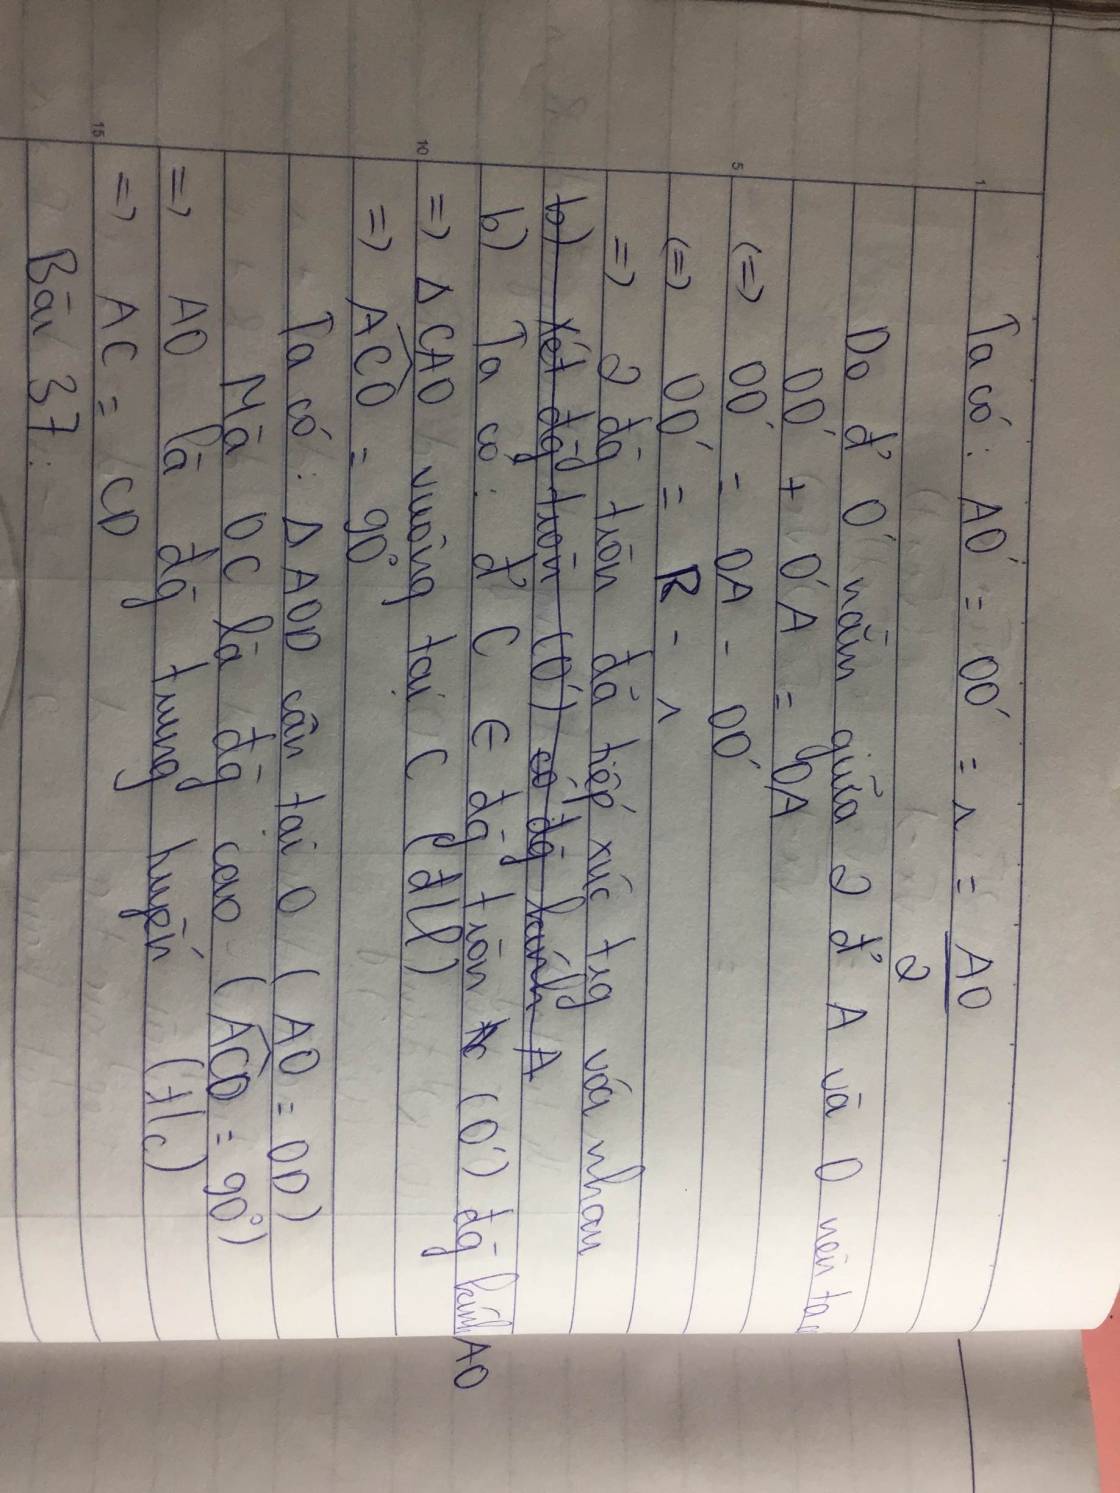 Ta có: AO' = OO' = r = AO
2
Do đ' O' nằm giữa 2 đ' A và O nên ta
OO' + O'A = OA
(=) OO' = OA - OO'
(=) OO' = R - r
=) 2 đg tròn đã tiếp xúc trg với nhau
b) Xét đg tròn (O') có đg kính A
b) Ta có: đ' C ∈ đg tròn (O') đg kính AO
=) Δ CAO vuông tại C (đll)
=) ACO = 90°
Ta có: Δ AOD cân tại O (AO = OD)
Mà OC là đg cao (ACD = 90°)
=) AO là đg trung tuyến (tlc)
=) AC = CD
Bài 37:
1
5
10
15